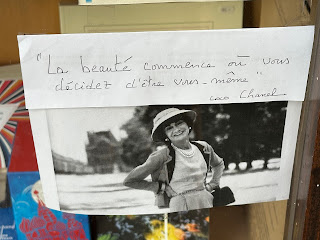 "La beauté commence où vous
décidez d'être vous-même"
Coco Chanel